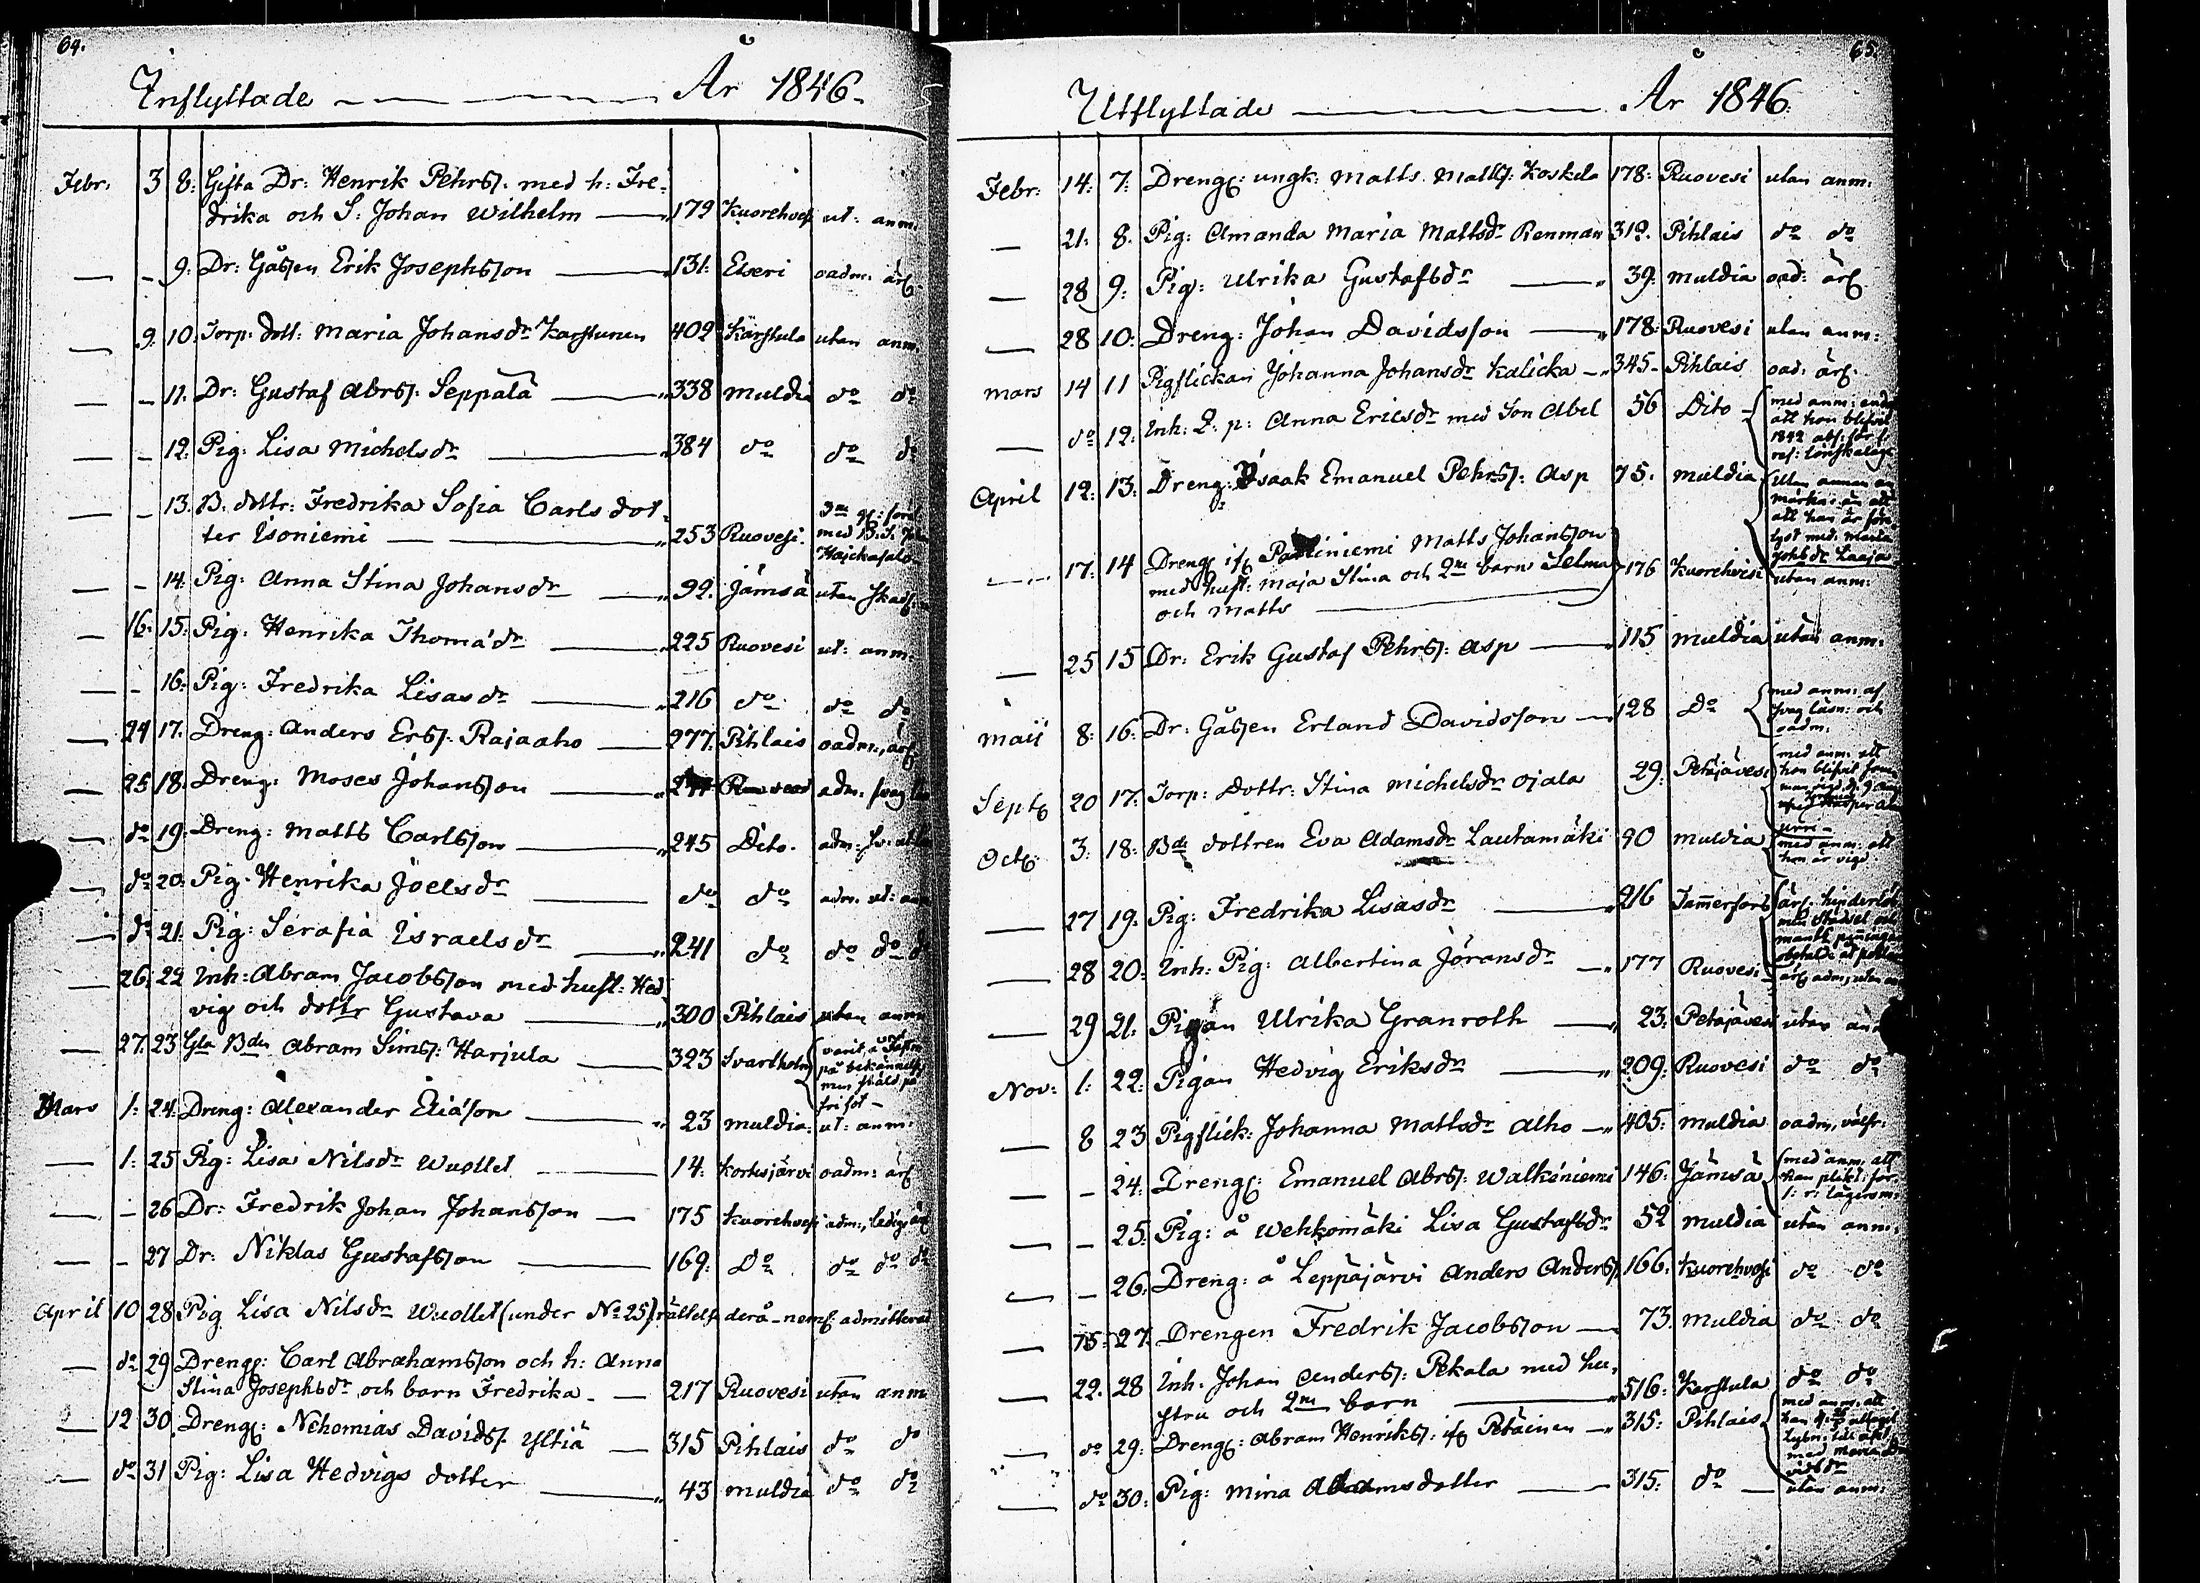 64.
Inflyttade År 1846.
Febr. 3 8: Gifta Dr: Henrik Pehrss. med h: Fre-
drika och S: Johan Wilhelm 179 Kuorehvesi ut: anm:
9: Dr: Gossen Erik Josephsson 131: Etseri oadm: ärl.
9. 10. Torp: dott: Maria Johansdr Karstunen 402 Karstula utan anm.
11. Dr: Gustaf Abrss. Seppälä 338 Muldia do do
12. Pig: Lisa Michelsdr 384 do do do
13. B. dottr: Fredrika Sofia Carls dot-
ter Isoniemi 253 Ruovesi. med B. S.
14. Pig: Anna Stina Johansdr 92. Jämsä utan
16. 15: Pig: Henrika Thomasdr 225 Ruovesi ut: anm:
16: Pig: Fredrika Lisasdr 216 do do do
24 17. Dreng: Anders Erss. Rajaaho 277. Pihlais oadm:, ärl.
25 18. Dreng: Moses Johansson adm: svag
do 19. Dreng: Matts Carlsson 245 Dito. adm:
do 20: Pig: Henrika Joelsdr do do adm. ut: anm
do 21. Pig: Serafia Israelsdr 241 do do do
26. 22 Inh: Abram Jacobsson med hust: Hed-
vig och dottr Gustava 300 Pihlais utan anm
27. 23 Gla Bdn Abram Simss: Harjula 323 Svartholm varit å Fästn.
på bekännelse
men
fri fot
Mars 1: 24. Dreng: Alexander Eliasson 23 Muldia: ut: anm:
1: 25 Pig: Lisa Nilsdr Wuollet 14: Kortesjärvi oadm: ärl
26 Dr: Fredrik Johan Johansson 175 Kuorehvesi adm:, ledig
27 Dr: Niklas Gustafsson 169: Do do do do
April 10 28 Pig. Lisa Nilsdr Wuollet (under No 25) rättelse derå neml: admitterad
do 29 Drengs: Carl Abrahamsson och h: Anna
Stina Josephsdr och barn Fredrika 217 Ruovesi utan anm
12 30 Drengs: Nehemias Davidss. Yltiä 315 Pihlais do do
do 31 Pig: Lisa Hedvigs dotter 43 Muldia do do
65
Utflyttade År 1846.
Febr: 14: 7: Drengs: ungk: Matts Matts. Koskela 178: Ruovesi utan anm:
21: 8. Pig: Amanda Maria Mattsdr Renman 312. Pihlais do do
28 9: Pig: Ulrika Gustafsdr 39: Muldia oad: ärl
28 10: Dreng: Johan Davidsson 178: Ruovesi utan anm:
Mars 14 11 Pigflickan Johanna Johansdr Kalicka 345 Pihlais oad: ärl.
do 12: Inh: Q. p: Anna Ericsdr med Son Abel 56 Dito med anm: endt
att hon blifvit
1842 abs: för 1:
res: lönskaläge
April 12: 13: Dreng: Isaak Emanuel Pehrss: Asp 75. Muldia utan annan an-
märkn: än att
att han är för-
lyst med: Maria
Johsdr Laaja
17: 14 Drengs ifr Matts Johansson
med hust: Maja Stina och 2ne barn Selma 176 Kuorehvesi utan anm:
och Matts
25 15 Dr: Erik Gustaf Pehrss: Asp 115 Muldia utan anm.
Maij 8: 16: Dr: Gossen Erland Davidsson 128 Do med anm: af
svag läsn: och
oadm:
Septb 20 17: Torp: Dottr: Stina Michelsdr Ojala 29: Petäjävesi med anm: att
hon blifvit
Octb: 3: 18: Bde dottren Eva Adamsdr Lautamäki 90 Muldia med anm: att
hon är vigd
27 19. Pig: Fredrika Lisasdr 216 Tammerfors ärl. hinderlös
28 20: Inh: Pig: Albertina Jöransdr 177 Ruovesi ärl adm, utan an
29 21. Pigan Ulrika Granroth 23. Petäjävesi utan anm
Nov: 1: 22: Pigan Hedvig Eriksdr 209: Ruovesi do do
8 23 Pigflick: Johanna Mattsdr Alho 405: Muldia oadm, välfr:
24: Drengs: Emanuel Abrss: Walkeniemi 146: Jämsä med anm: att
han plikt: för
1: r: lägersm:
25: Pig: å Wehkomäki Lisa Gustafsdr 52 Muldia utan anm:
26: Dreng: å Leppäjärvi Anders Anderss. 166. Kuorehvesi do do
15: 27. Drengen Fredrik Jacobsson 73. Muldia do do
22: 28 Inh: Johan Anderss: Pekala med hu-
stru och 2ne barn 516: Karstula do do
do 29: Drengs: Abram Henrikss: ifr Petäinen 315: Pihlais med anm: att
med Maria Da-
vidsdr
do 30: Pig: Mina Adamsdotter 315: do utan anm: